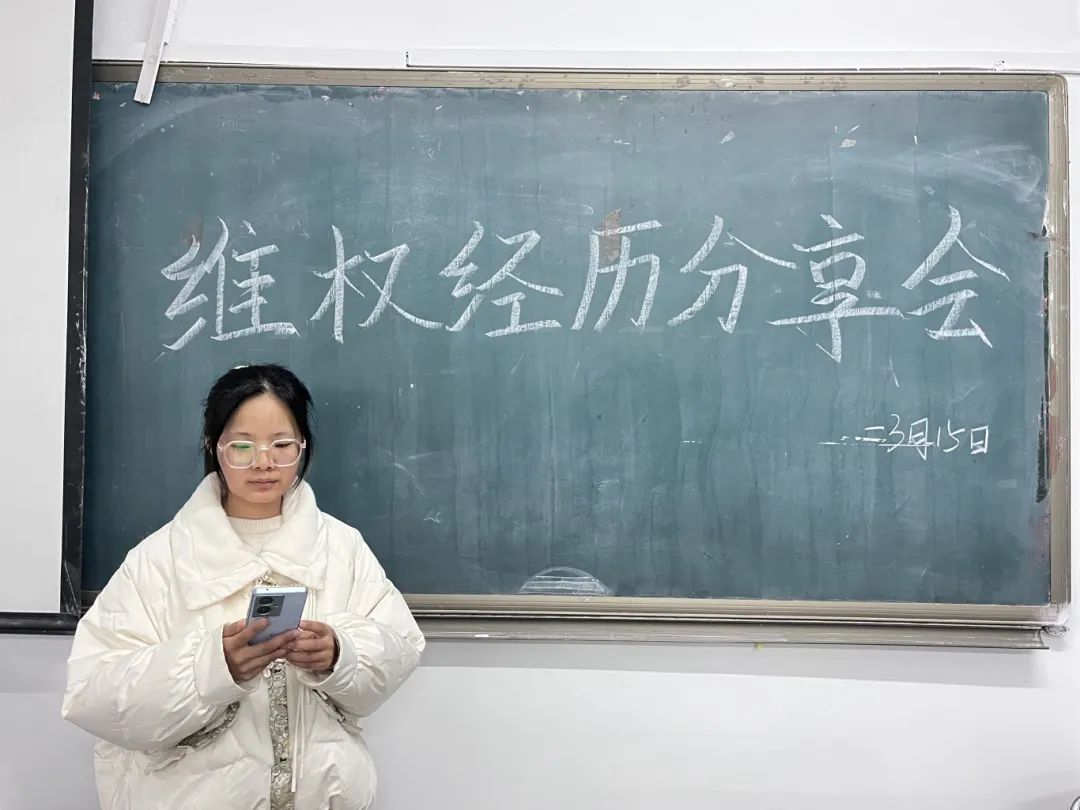 维权经历分享会
3月15日